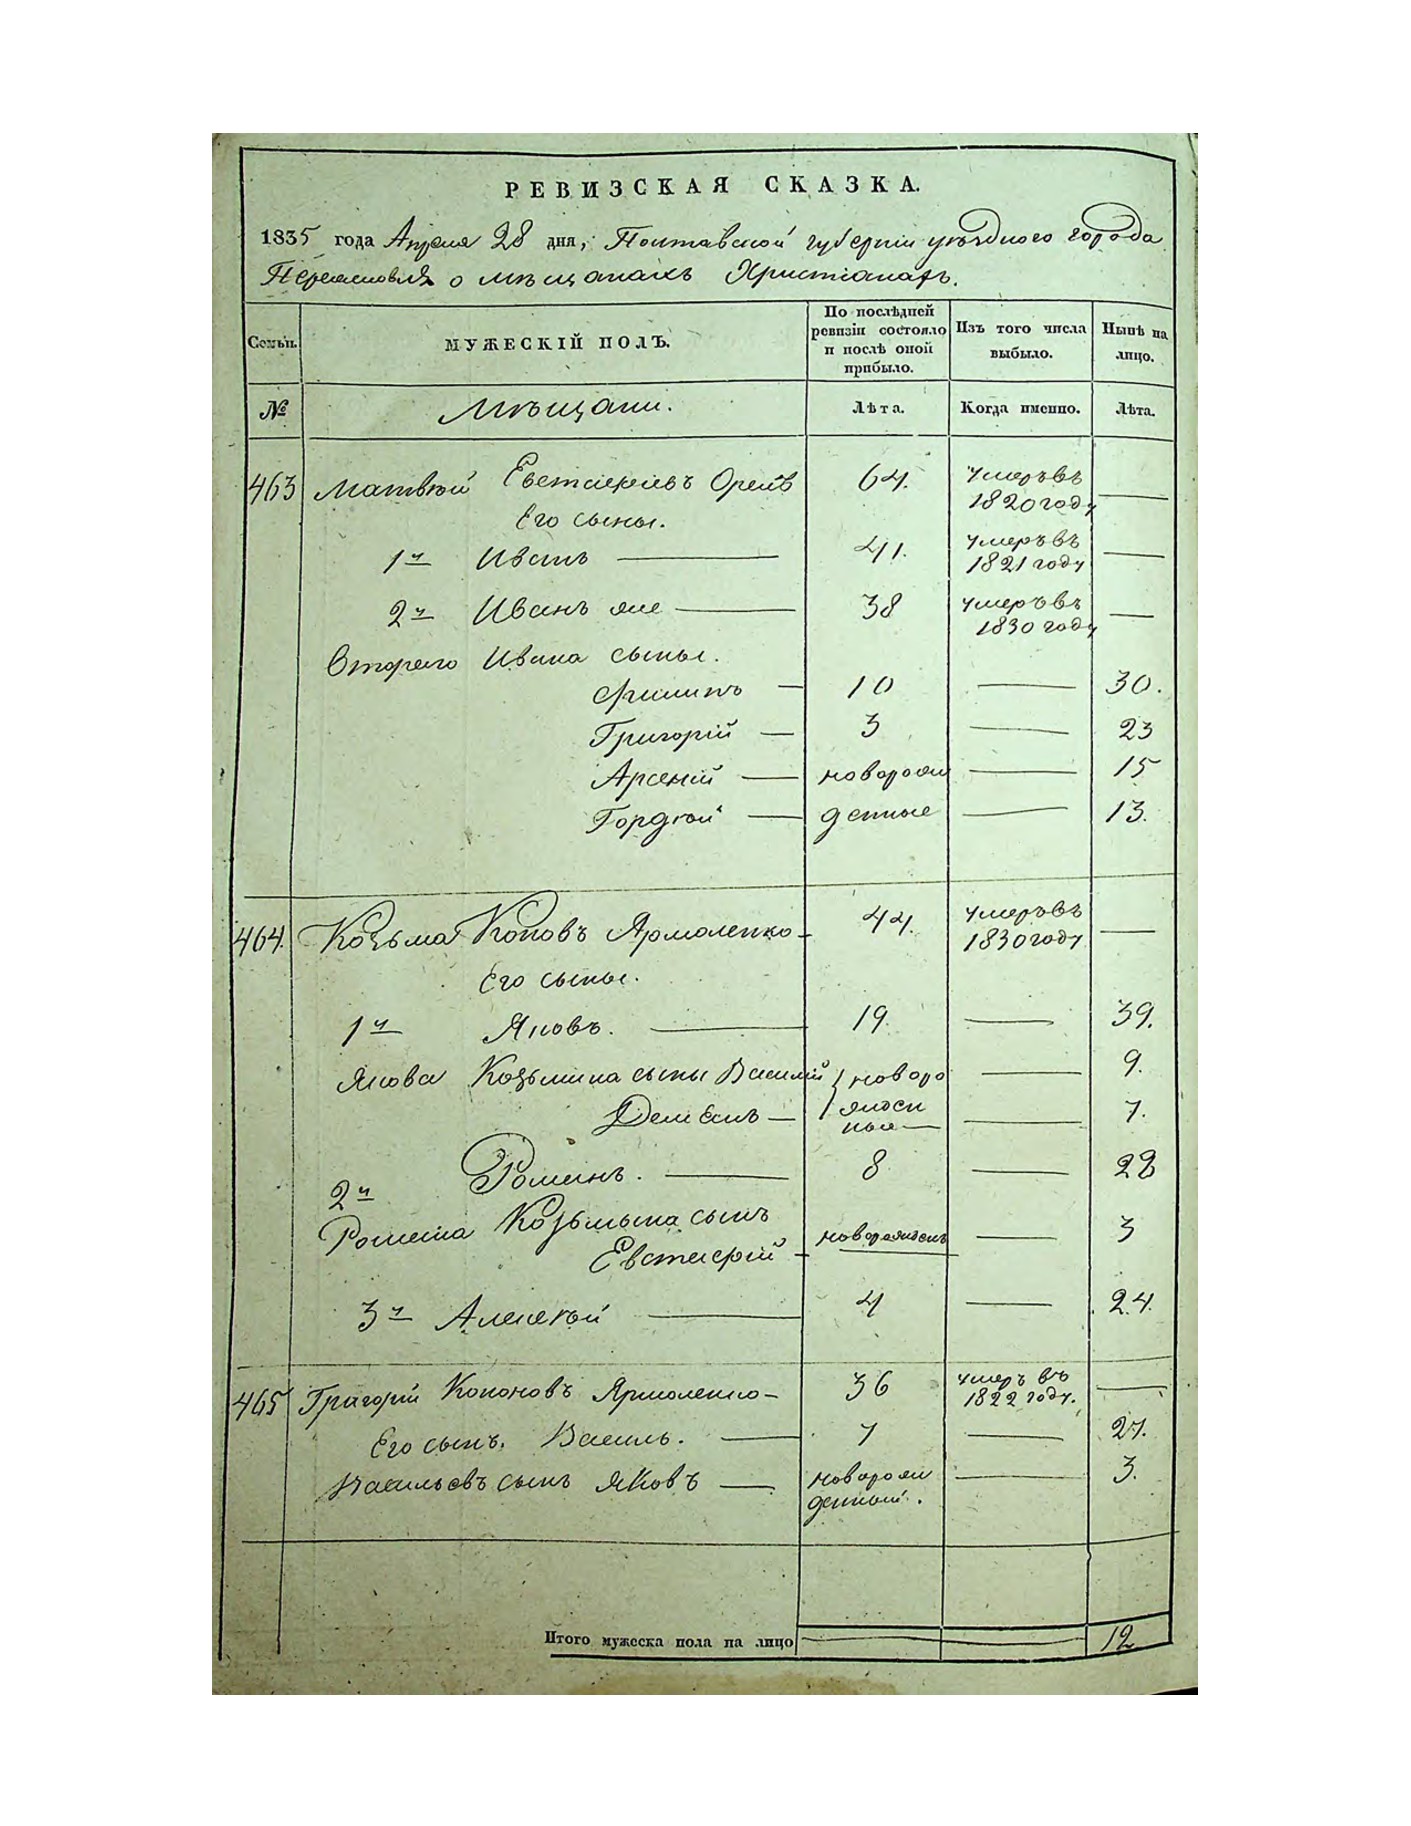 РЕВИЗСКАЯ СКАЗКА.
1835 года Апреля 28 дня, Полтавской губерніи уѣзднаго города
Переяславля о мѣщанахъ Христіанахъ.
Семьи. МУЖЕСКІЙ ПОЛЪ. По послѣдней ревизіи состояло и послѣ оной прибыло. Изъ того числа выбыло. Нынѣ на лицо.
№ Мѣщани. Лѣта. Когда именно. Лѣта.
463 Матвѣй Евстафіевъ 64. умеръ въ 1820 году —
Его сыны.
1й Иванъ — 41. умеръ въ 1821 году —
2й Иванъ же — 38 умеръ въ 1830 году —
Втораго Ивана сыны.
Филипъ — 10 — 30.
Григорій — 3 — 23
Арсеній — новорож — 15
Гордѣй — денные — 13.
464. Козьма Коновъ Ярмоленко — 44. умеръ въ 1830 году —
Его сыны.
1й Яковъ. — 19. — 39.
Якова Козьмина сыны Василій новоро — 9.
Демеанъ — жден ные — 7.
2й Романъ. — 8 — 28
Романа Козьмина сынъ
Евстафій — новорожден — 3
3й Алексѣй — 4 — 24.
465 Григорій Кононовъ Ярмоленко — 36 умеръ въ 1822 году. —
Его сынъ. Василь. — 7 — 27.
Васильевъ сынъ Яковъ — новорож денный. — 3.
Итого мужеска пола на лицо — — 12